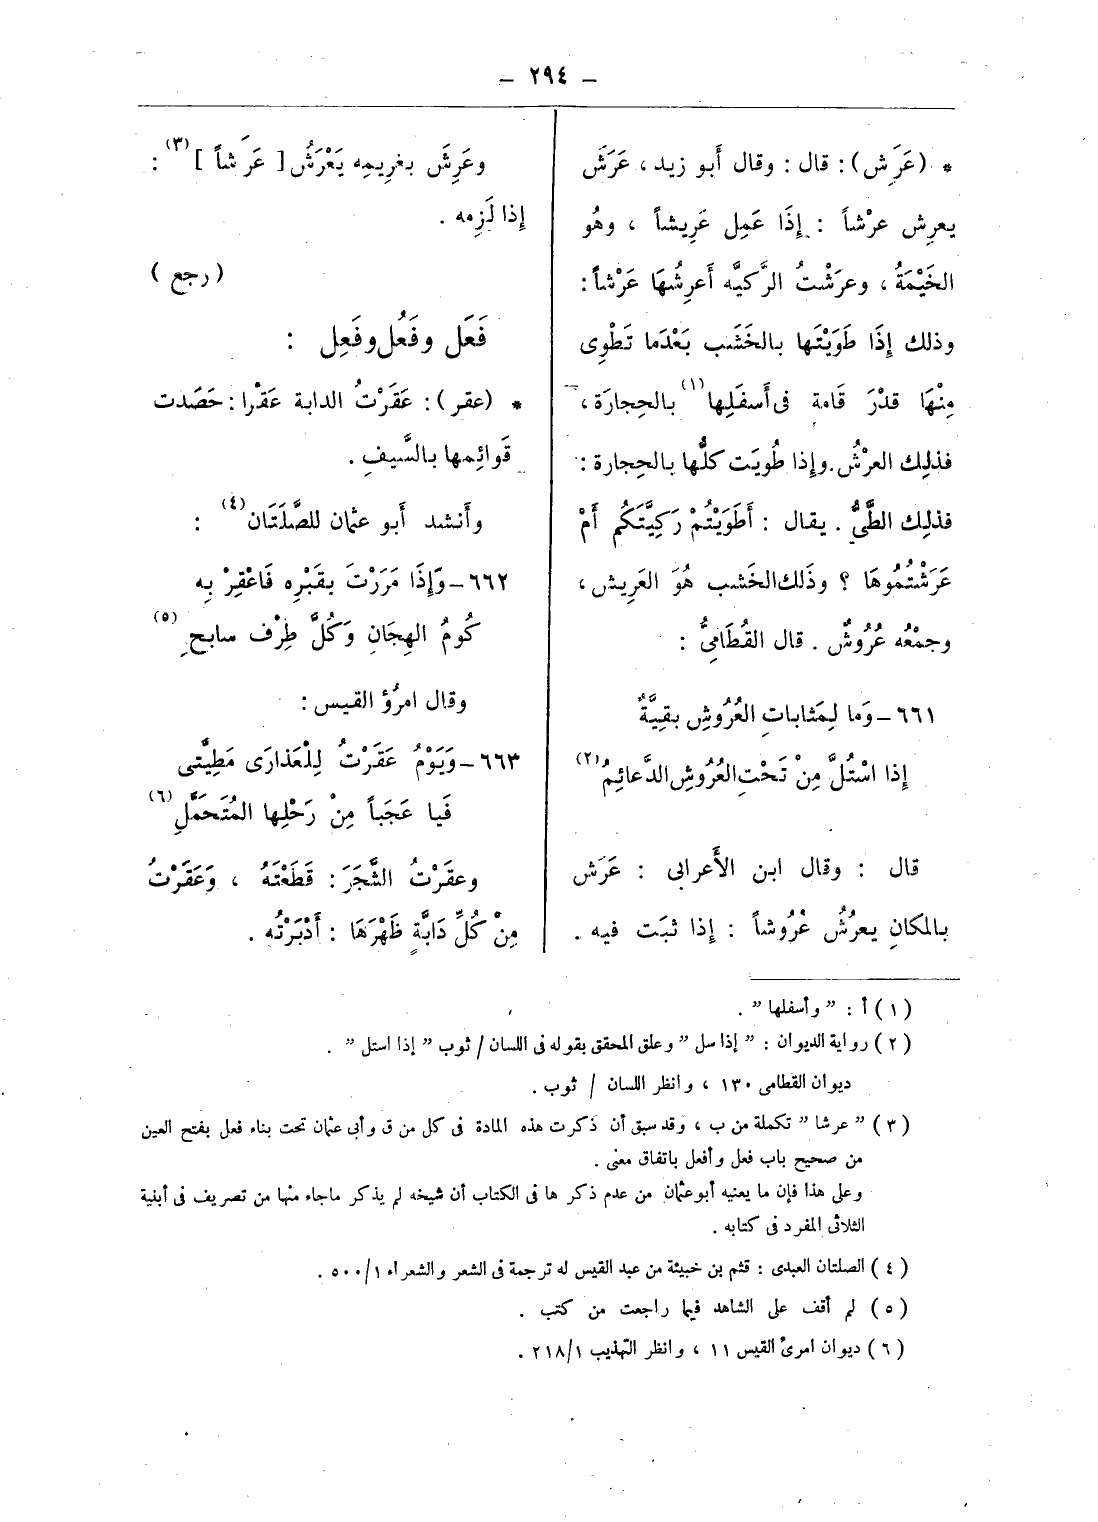 — ٢٩٤ —
* (عَرَِش): قال: وقال أَبو زيد، عَرَشَ
يعرِش عرْشاً : إِذَا عَمِل عَرِيشاً ، وهُو
الخَيْمَةُ ، وعرَشْتُ الرَّكيَّه أَعرِشُهَا عَرْشاً:
وذلك إِذَا طَوَيْتَها بالخَشَب بَعْدَما تَطْوِى
مِنْهَا قدْرَ قَامة فى أَسفَلِها(١) بالحِجارَة،
فذلِك العرْشُ. وإِذا طُويَت كلُّها بالحِجارة :
فذلِك الطَّىُّ . يقال : أَطَوَيْتُمْ رَكِيَّتَكُم أَمْ
عَرَشْتُمُوهَا ؟ وذَلك الخَشب هُوَ العَرِيش،
وجمْعُه عُرُوشٌ . قال القُطَامِىُّ :
٦٦١ – وَما لِمَثابات العُرُوشِ بقِيَّةٌ
إِذا اسْتُلَّ مِنْ تَحْتِ العُرُوشِ الدَّعائِمُ(٢)
قال : وقال ابن الأَعرابى : عَرَش
بالمكانِ يعرُشُ عُرُوشاً : إِذا ثبَت فيه .
وعَرِشَ بغرِيمِه يَعْرَشُ [ عَرَشاً ](٣) :
إِذا لَزِمه .
( رجع )
فَعَل وفَعُل وفَعِل :
* (عقر): عَقَرْتُ الدابة عَقْرا: حَصَدت
قَوائِمها بالسَّيفِ .
وأَنشد أَبو عثمان للصَّلَتَان(٤) :
٦٦٢ – وَإِذَا مَرَرْتَ بقَبْرِه فَاعْقِرْ بِه
كُومُ الهِجَانِ وَكُلَّ طِرْف سابحٍ(٥)
وقال امرُؤ القيس :
٦٦٣ – وَيَوْمُ عَقَرْتُ لِلْعَذارَى مَطِيَّتى
فَيا عَجَباً مِنْ رَحْلِها المُتَحَمَّلِ(٦)
وعقَرْتُ الشَّجَرَ : قَطَعْتَهُ ، وَعَقَرْتُ
مِنْ كُلِّ دَابَّةٍ ظَهْرَهَا : أَدْبَرْتُه .
(١) أ : ” وأسفلها ” .
(٢) رواية الديوان : ” إذا سل ” وعلق المحقق بقوله فى اللسان / ثوب ” إذا استل ” .
ديوان القطامى ١٣٠ ، وانظر اللسان / ثوب .
(٣) ” عرشا ” تكملة من ب ، وقد سبق أن ذكرت هذه المادة فى كل من ق وأبى عثمان تحت بناء فعل بفتح العين
من صحيح باب فعل وأفعل باتفاق معنى .
وعلى هذا فإن ما يعنيه أبو عثمان من عدم ذكر ها فى الكتاب أن شيخه لم يذكر ماجاء منها من تصريف فى أبنية
الثلاثى المفرد فى كتابه .
(٤) الصلتان العبدى : قثم بن خبيئة من عبد القيس له ترجمة فى الشعر والشعراء ٥٠٠/١ .
(٥) لم أقف على الشاهد فيما راجعت من كتب .
(٦) ديوان امرئ القيس ١١ ، وانظر التهذيب ٢١٨/١ .